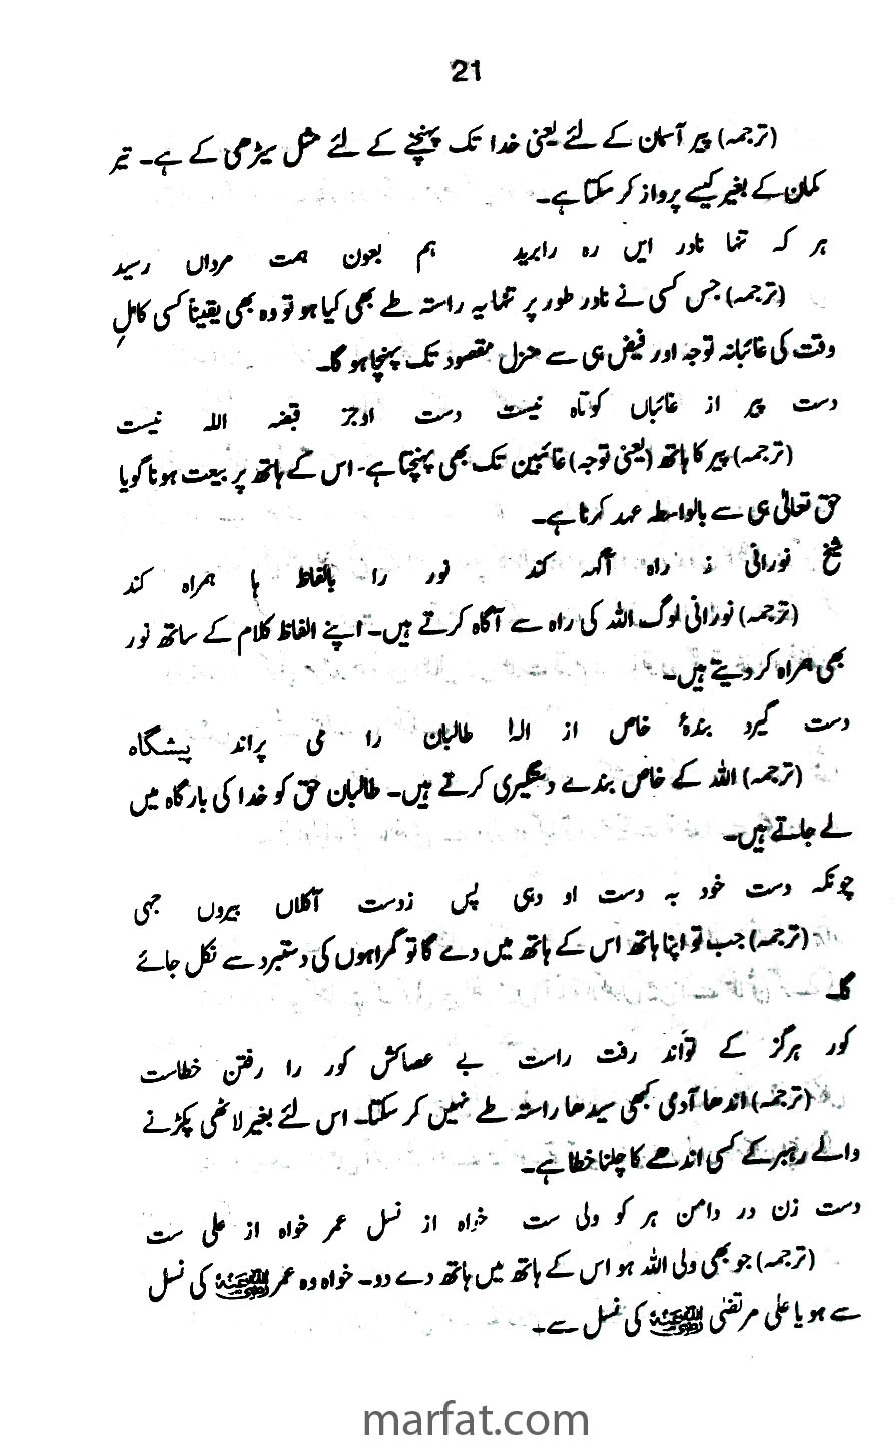 21
(ترجمہ) پیر آسمان کے لئے یعنی خدا تک پہنچنے کے لئے مثل سیڑھی کے ہے۔ تیر
کمان کے بغیر کیسے پرواز کر سکتا ہے۔
ہر کہ تنہا نادر ایں رہ رابرید ہم بعون ہمت مرداں رسید
(ترجمہ) جس کسی نے نادر طور پر تنہا یہ راستہ طے بھی کیا ہو تو وہ بھی یقیناً کسی کاملِ
وقت کی غائبانہ توجہ اور فیض ہی سے منزل مقصود تک پہنچا ہو گا۔
دست پیر از غائباں کوتاہ نیست دست اوجز قبضہ اللہ نیست
(ترجمہ) پیر کا ہاتھ (یعنی توجہ) غائبین تک بھی پہنچتا ہے۔ اس کے ہاتھ پر بیعت ہونا گویا
حق تعالیٰ ہی سے بالواسطہ عہد کرنا ہے۔
شیخ نورانی ز راہ آگہ کند نور را بالفاظ ہا ہمراہ کند
(ترجمہ) نورانی لوگ اللہ کی راہ سے آگاہ کرتے ہیں۔ اپنے الفاظ کلام کے ساتھ نور
بھی ہمراہ کر دیتے ہیں۔
دست گیرد بندۂ خاص از الہٰ طالبان را می پراند پیشگاہ
(ترجمہ) اللہ کے خاص بندے دستگیری کرتے ہیں۔ طالبان حق کو خدا کی بارگاہ میں
لے جاتے ہیں۔
چونکہ دست خود بہ دست او دہی پس زدست آکلاں بیروں جہی
(ترجمہ) جب تو اپنا ہاتھ اس کے ہاتھ میں دے گا تو گمراہوں کی دستبرد سے نکل جائے
گا۔
کور ہرگز کے تواند رفت راست بے عصاکش کور را رفتن خطاست
(ترجمہ) اندھا آدمی کبھی سیدھا راستہ طے نہیں کر سکتا۔ اس لئے بغیر لاٹھی پکڑنے
والے رہبر کے کسی اندھے کا چلنا خطا ہے۔
دست زن در دامن ہر کو ولی ست خواہ از نسل عمر خواہ از علی ست
(ترجمہ) جو بھی ولی اللہ ہو اس کے ہاتھ میں ہاتھ دے دو۔ خواہ وہ عمر رضی اللہ عنہ کی نسل
سے ہو یا علی مرتضیٰ رضی اللہ عنہ کی نسل سے۔
marfat.com